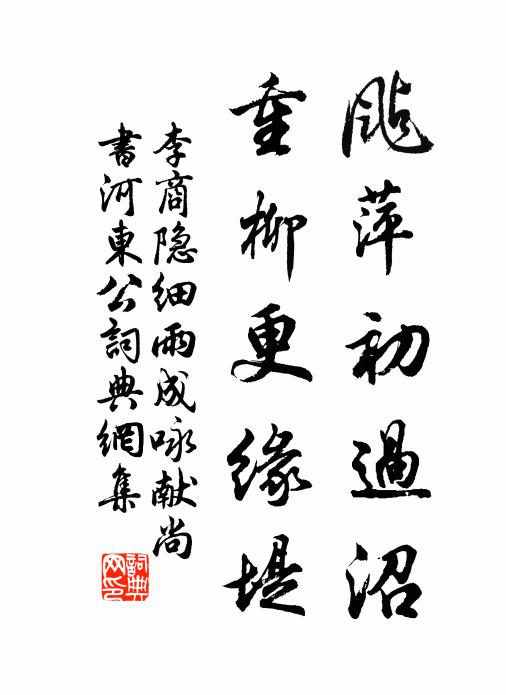 飐萍初過沼
重柳更緣堤
李商隐細雨成咏献尚
書河東公詞典網集
詞典
网印